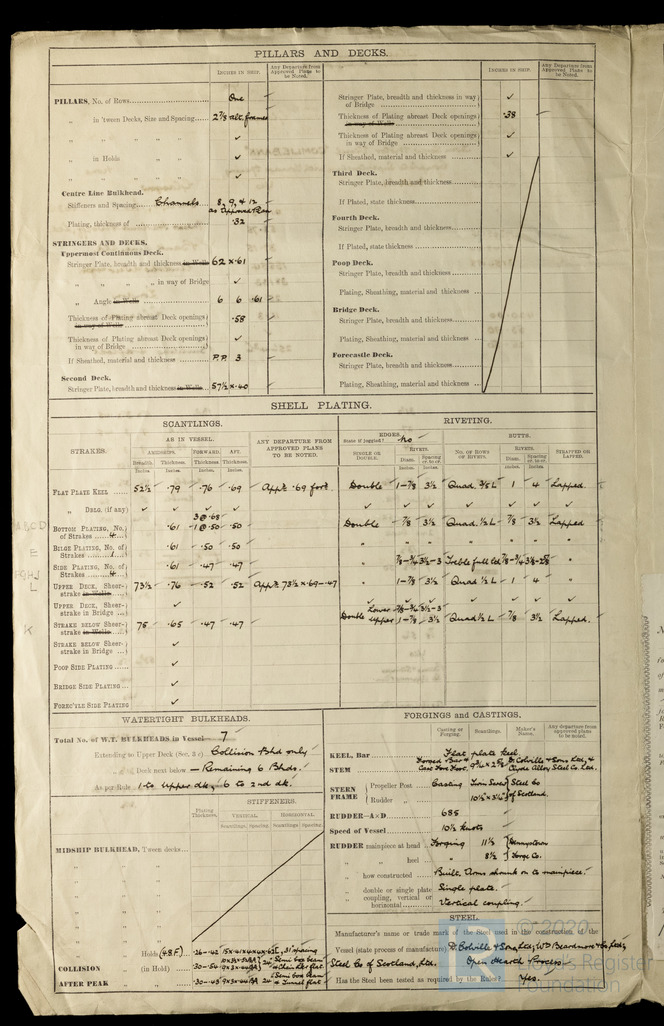 PILLARS AND DECKS.
INCHES IN SHIP.
Any Departure from Approved Plans to be Noted.
PILLARS, No. of Rows One
„ in 'tween Decks, Size and Spacing 2 7/8 alt. frames
„ „ „ „ ✓
„ in Holds „ „ ✓
„ „ „ „ ✓
Centre Line Bulkhead.
Stiffeners and Spacing Channels 8, 9, & 12 as Approved Plan
Plating, thickness of .32
STRINGERS AND DECKS.
Uppermost Continuous Deck.
Stringer Plate, breadth and thickness in Wells 62 x .61
„ „ „ „ in way of Bridge ✓
„ Angle in Wells 6 6 .61
Thickness of Plating abreast Deck openings in way of Wells .58
Thickness of Plating abreast Deck openings in way of Bridge ✓
If Sheathed, material and thickness P.P. 3
Second Deck.
Stringer Plate, breadth and thickness in Wells 57½ x .40
INCHES IN SHIP.
Any Departure from Approved Plans to be Noted.
Stringer Plate, breadth and thickness in way of Bridge ✓
Thickness of Plating abreast Deck openings in way of Wells .38
Thickness of Plating abreast Deck openings in way of Bridge ✓
If Sheathed, material and thickness ✓
Third Deck.
Stringer Plate, breadth and thickness
If Plated, state thickness
Fourth Deck.
Stringer Plate, breadth and thickness
If Plated, state thickness
Poop Deck.
Stringer Plate, breadth and thickness
Plating, Sheathing, material and thickness
Bridge Deck.
Stringer Plate, breadth and thickness
Plating, Sheathing, material and thickness
Forecastle Deck.
Stringer Plate, breadth and thickness
Plating, Sheathing, material and thickness
SHELL PLATING.
SCANTLINGS.
RIVETING.
STRAKES.
AS IN VESSEL.
AMIDSHIPS. FORWARD. AFT.
Breadth. Thickness. Thickness. Thickness.
Inches. Inches. Inches. Inches.
ANY DEPARTURE FROM APPROVED PLANS TO BE NOTED.
EDGES.
State if joggled? No
SINGLE OR DOUBLE.
RIVETS.
Diam. Spacing cr. to cr.
Inches. Inches.
BUTTS.
NO. OF ROWS OF RIVETS.
RIVETS.
Diam. Spacing cr. to cr.
Inches. Inches.
STRAPPED OR LAPPED.
FLAT PLATE KEEL 52½ .79 .76 .69 Appd. .69 for'd. Double 1-7/8 3½ Quad. 3/5 L 1 4 Lapped
„ DBLG. (if any) ✓ ✓ ✓ ✓ ✓ ✓ ✓ ✓ ✓ ✓ ✓
BOTTOM PLATING, No. of Strakes 4 .61 3 @ .68 1 @ .50 .50 Double 7/8 3½ Quad. ½ L 7/8 3½ Lapped
BILGE PLATING, No. of Strakes 1 .61 .50 .50 „ „ „ „ „ „ „
SIDE PLATING, No. of Strakes 4 .61 .47 .47 „ 7/8-¾ 3½-3 Treble full ltd 7/8-¾ „
UPPER DECK, Sheer-strake in Wells 73½ .76 .52 .52 Appd. 73½ x .69-.47 „ 1-7/8 3½ Quad ½ L 1 4 „
UPPER DECK, Sheer-strake in Bridge ✓
STRAKE BELOW Sheer-strake in Wells 75 .65 .47 .47 Double Lower 7/8-¾ 3½-3 upper 1-7/8 3½ Quad ½ L 7/8 3½ Lapped.
STRAKE BELOW Sheer-strake in Bridge ✓
POOP SIDE PLATING ✓
BRIDGE SIDE PLATING ✓
FOREC'TLE SIDE PLATING ✓
WATERTIGHT BULKHEADS.
Total No. of W.T. BULKHEADS in Vessel 7
Extending to Upper Deck (Sec. 3 c) Collision Bhd only
„ Deck next below Remaining 6 Bhds.
As per Rule 1 to upper dk, 6 to 2nd dk.
Plating Thickness.
STIFFENERS.
VERTICAL. HORIZONTAL.
Scantlings. Spacing. Scantlings. Spacing.
MIDSHIP BULKHEAD, Tween decks
Holds (48F)
COLLISION (in Hold)
AFTER PEAK
FORGINGS and CASTINGS.
Casting or Forging. Scantlings. Maker's Name. Any departure from approved plans to be noted.
KEEL, Bar Flat plate keel
STEM Forged Bar & Cast Iron Foot. D. Colville & Sons Ltd., & Clyde Alloy Steel Co. Ltd.
STERN FRAME
Propeller Post Casting Twin Screw Steel Co
Rudder „ 10½ x 3½ of Scotland.
RUDDER—A×D 685
Speed of Vessel 10½ knots
RUDDER mainpiece at head Forging 11½ Dennystown
„ „ heel „ 8½ Forge Co.
„ how constructed Built. Arms shrunk on to mainpiece.
„ double or single plate Single plate.
„ coupling, vertical or horizontal Vertical coupling.
STEEL.
Manufacturer's name or trade mark of the Steel used in the construction of the
Vessel (state process of manufacture) D. Colville & Sons, Ltd; Wm Beardmore & Co, Ltd;
Steel Co of Scotland, Ltd. Open Hearth Process
Has the Steel been tested as required by the Rules? Yes.
© 2020
Lloyd's Register
Foundation